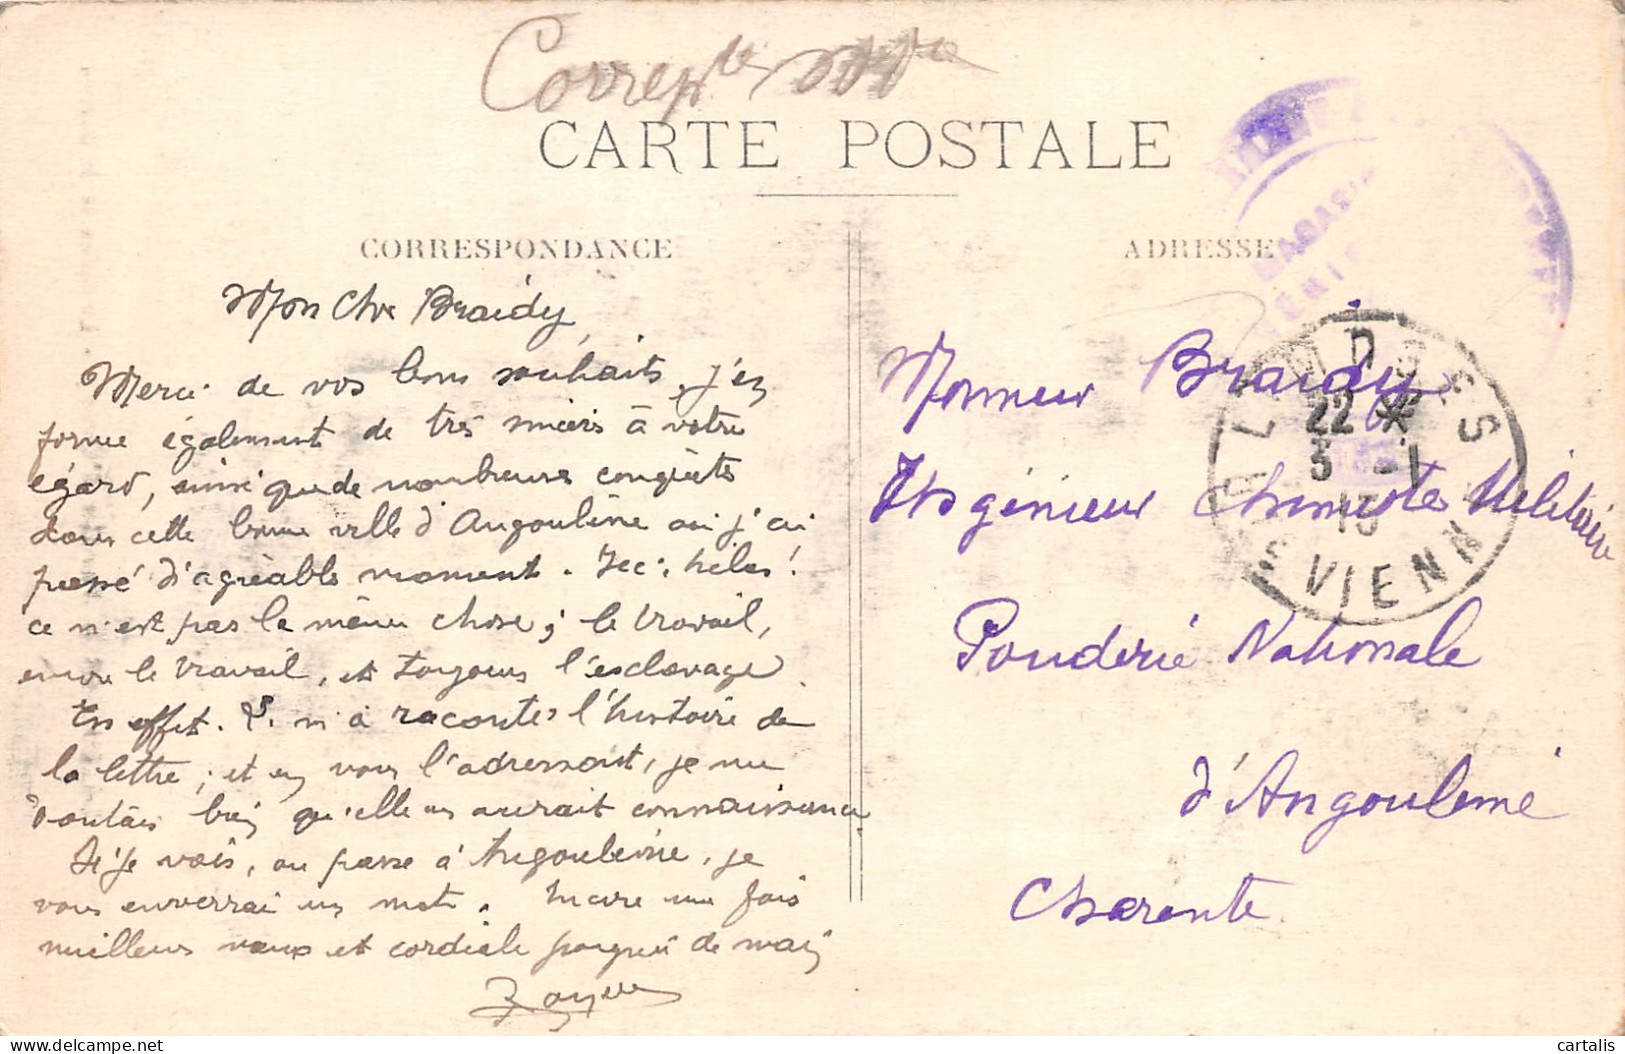 Corresp^ce mil^re
CARTE POSTALE
CORRESPONDANCE
ADRESSE
MAGASIN
Mon Cher Braidy,
Merci de vos bons souhaits, j'en
forme également de très sincères à votre
égard, ainsi que de nombreuses conquêtes
dans cette bonne ville d'Angoulême où j'ai
passé d'agréable moment. Ici, hélas!
ce n'est pas la même chose; le travail,
encore le travail, et toujours l'esclavage
En effet. P. m'a raconter l'histoire de
la lettre; et en vous l'adressant, je me
doutais bien qu'elle en aurait connaissance
Si je vais, ou passe à Angoulême, je
vous enverrai un mot. Encore une fois
meilleurs vœux et cordiale poignée de main
Monsieur Braidy
Ingénieur Chimiste Militaire
Poudrerie Nationale
d'Angoulême
Charente
LIMOGES
22
3 -1
15
VIENNE
cartalis
delcampe.net